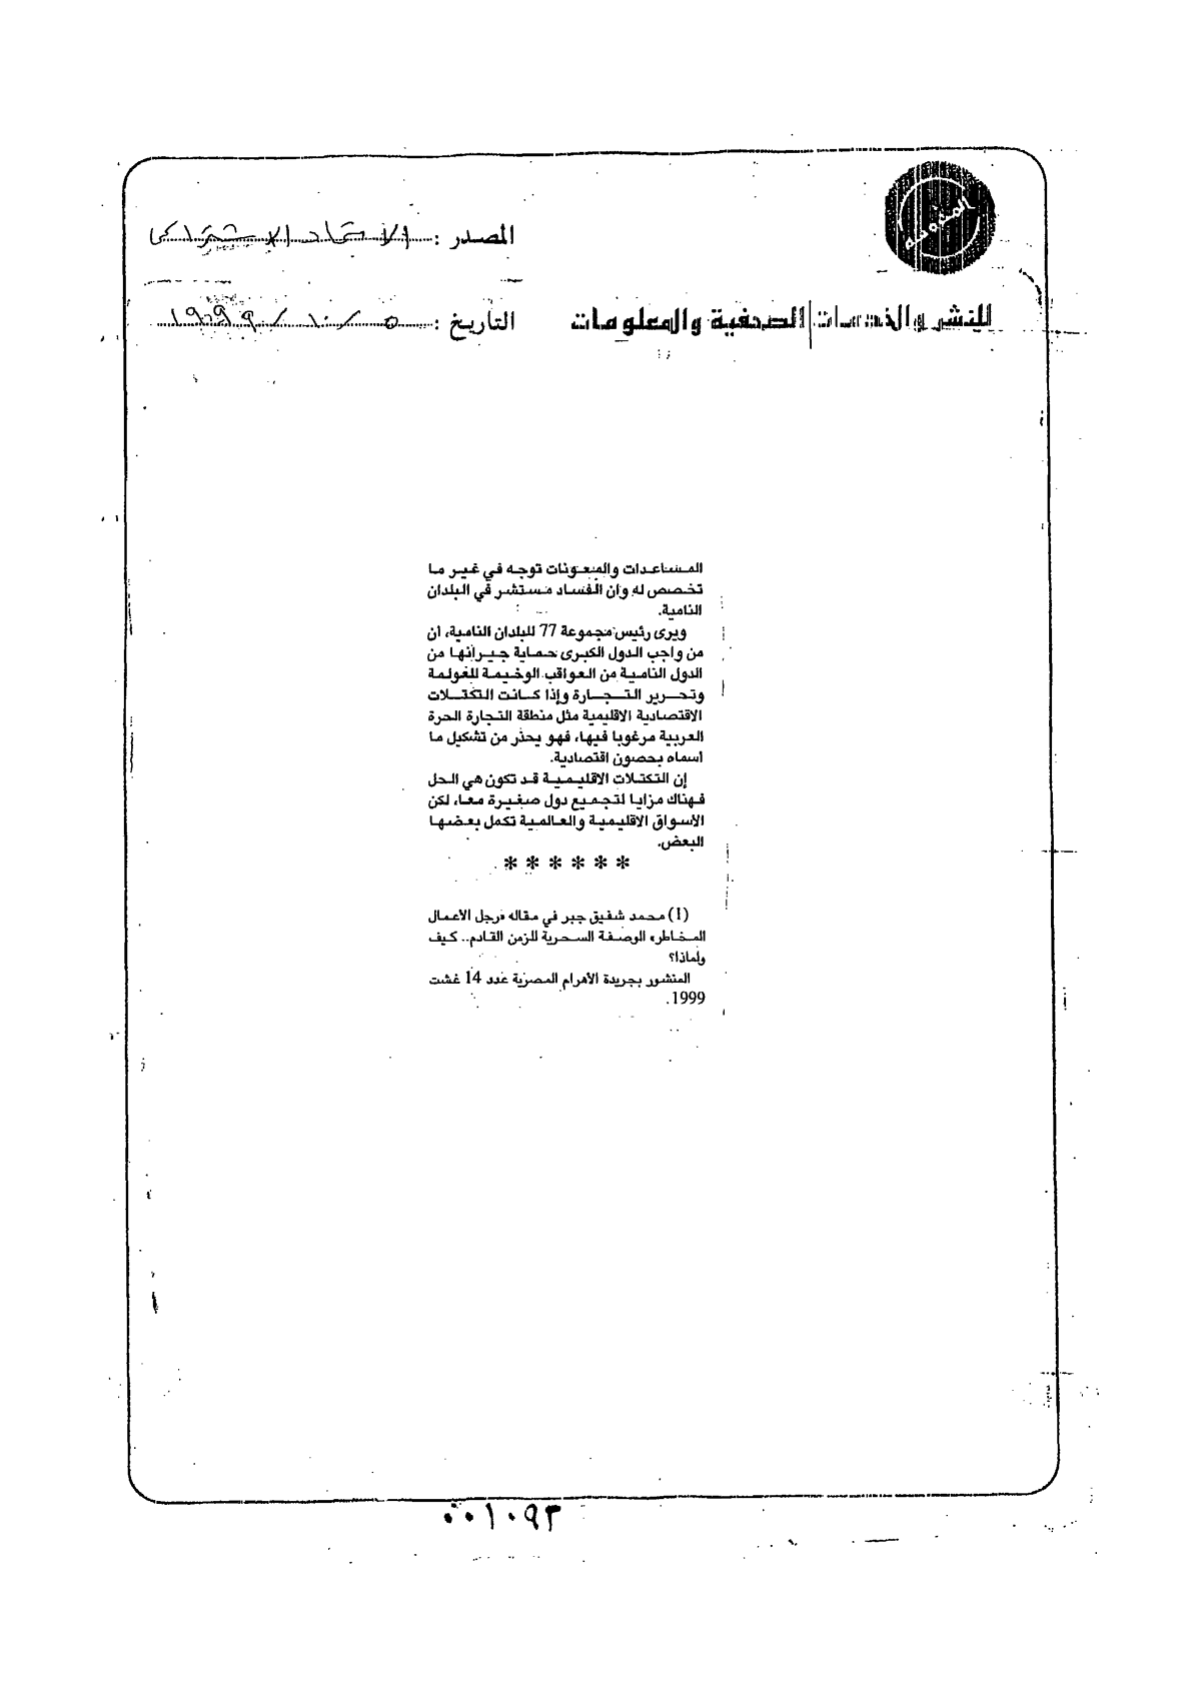 المصدر : الاتحاد الاشتراكي
للنشر والخدمات الصحفية والمعلومات
التأريخ : ٥ / ١٠ / ١٩٩٩
المساعدات والمعونات توجه في غير ما
تخصص له وان الفساد مستشر في البلدان
النامية.
ويرى رئيس مجموعة 77 للبلدان النامية، ان
من واجب الدول الكبرى حماية جيرانها من
الدول النامية من العواقب الوخيمة للعولمة
وتحرير التجارة وإذا كانت التكتلات
الاقتصادية الاقليمية مثل منطقة التجارة الحرة
العربية مرغوبا فيها، فهو يحذر من تشكيل ما
أسماه بحصون اقتصادية.
إن التكتلات الاقليمية قد تكون هي الحل
فهناك مزايا لتجميع دول صغيرة معا، لكن
الأسواق الاقليمية والعالمية تكمل بعضها
البعض.
* * * * * *
(1) محمد شفيق جبر في مقاله «رجل الأعمال
المخاطر» الوصفة السحرية للزمن القادم.. كيف
ولماذا؟
المنشور بجريدة الأهرام المصرية عدد 14 غشت
1999.
٠٠١٠٩٣